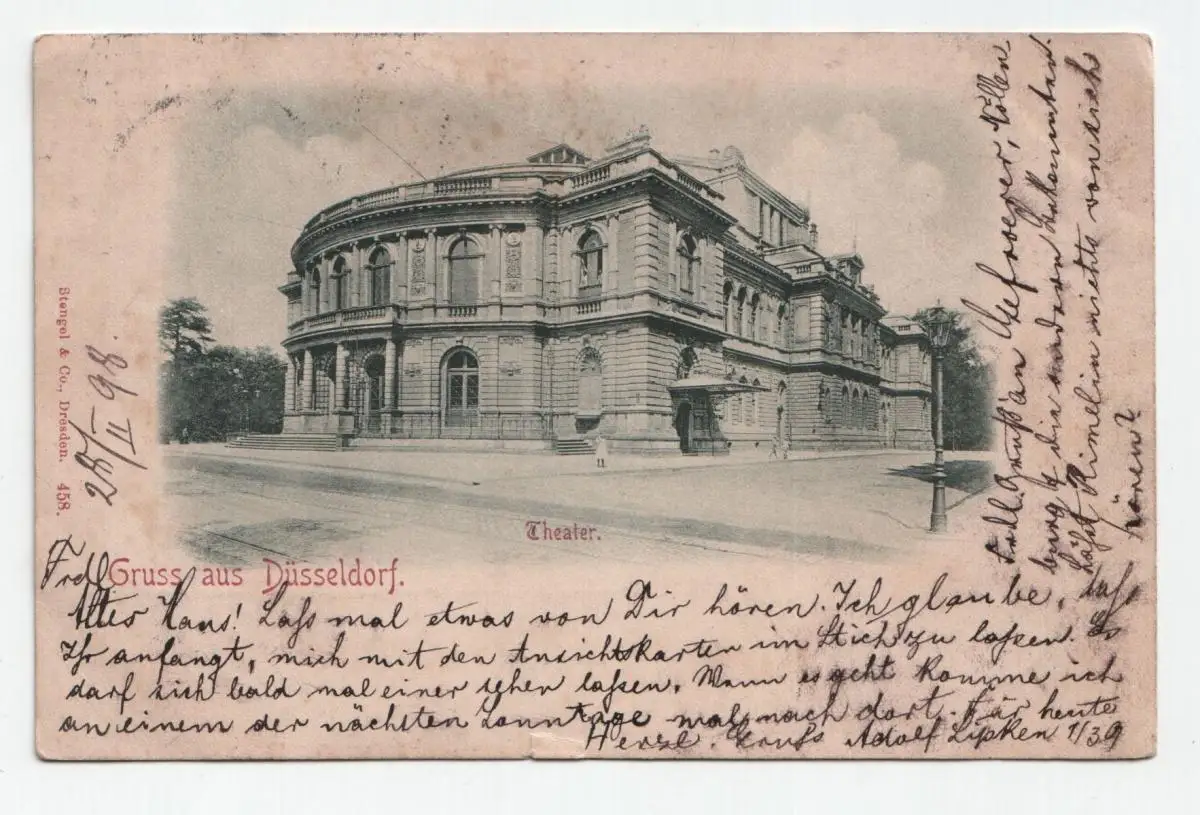 Stengel & Co., Dresden. 458.
28/II 98.
Theater.
Gruss aus Düsseldorf.
Altes Haus! Laß mal etwas von Dir hören. Ich glaube, daß
Ihr anfangt, mich mit den Ansichtskarten im Stich zu laßen. Es
darf sich bald mal einer sehen laßen. Wenn es geht komme ich
an einem der nächsten Sonntage mal nach dort. Für heute
Herzl. Gruß Adolf Lipken 1/39
Frdl. Gruß an
burg & die anderen Bekannten.
Läßt Rimelin nichts von sich
hören?